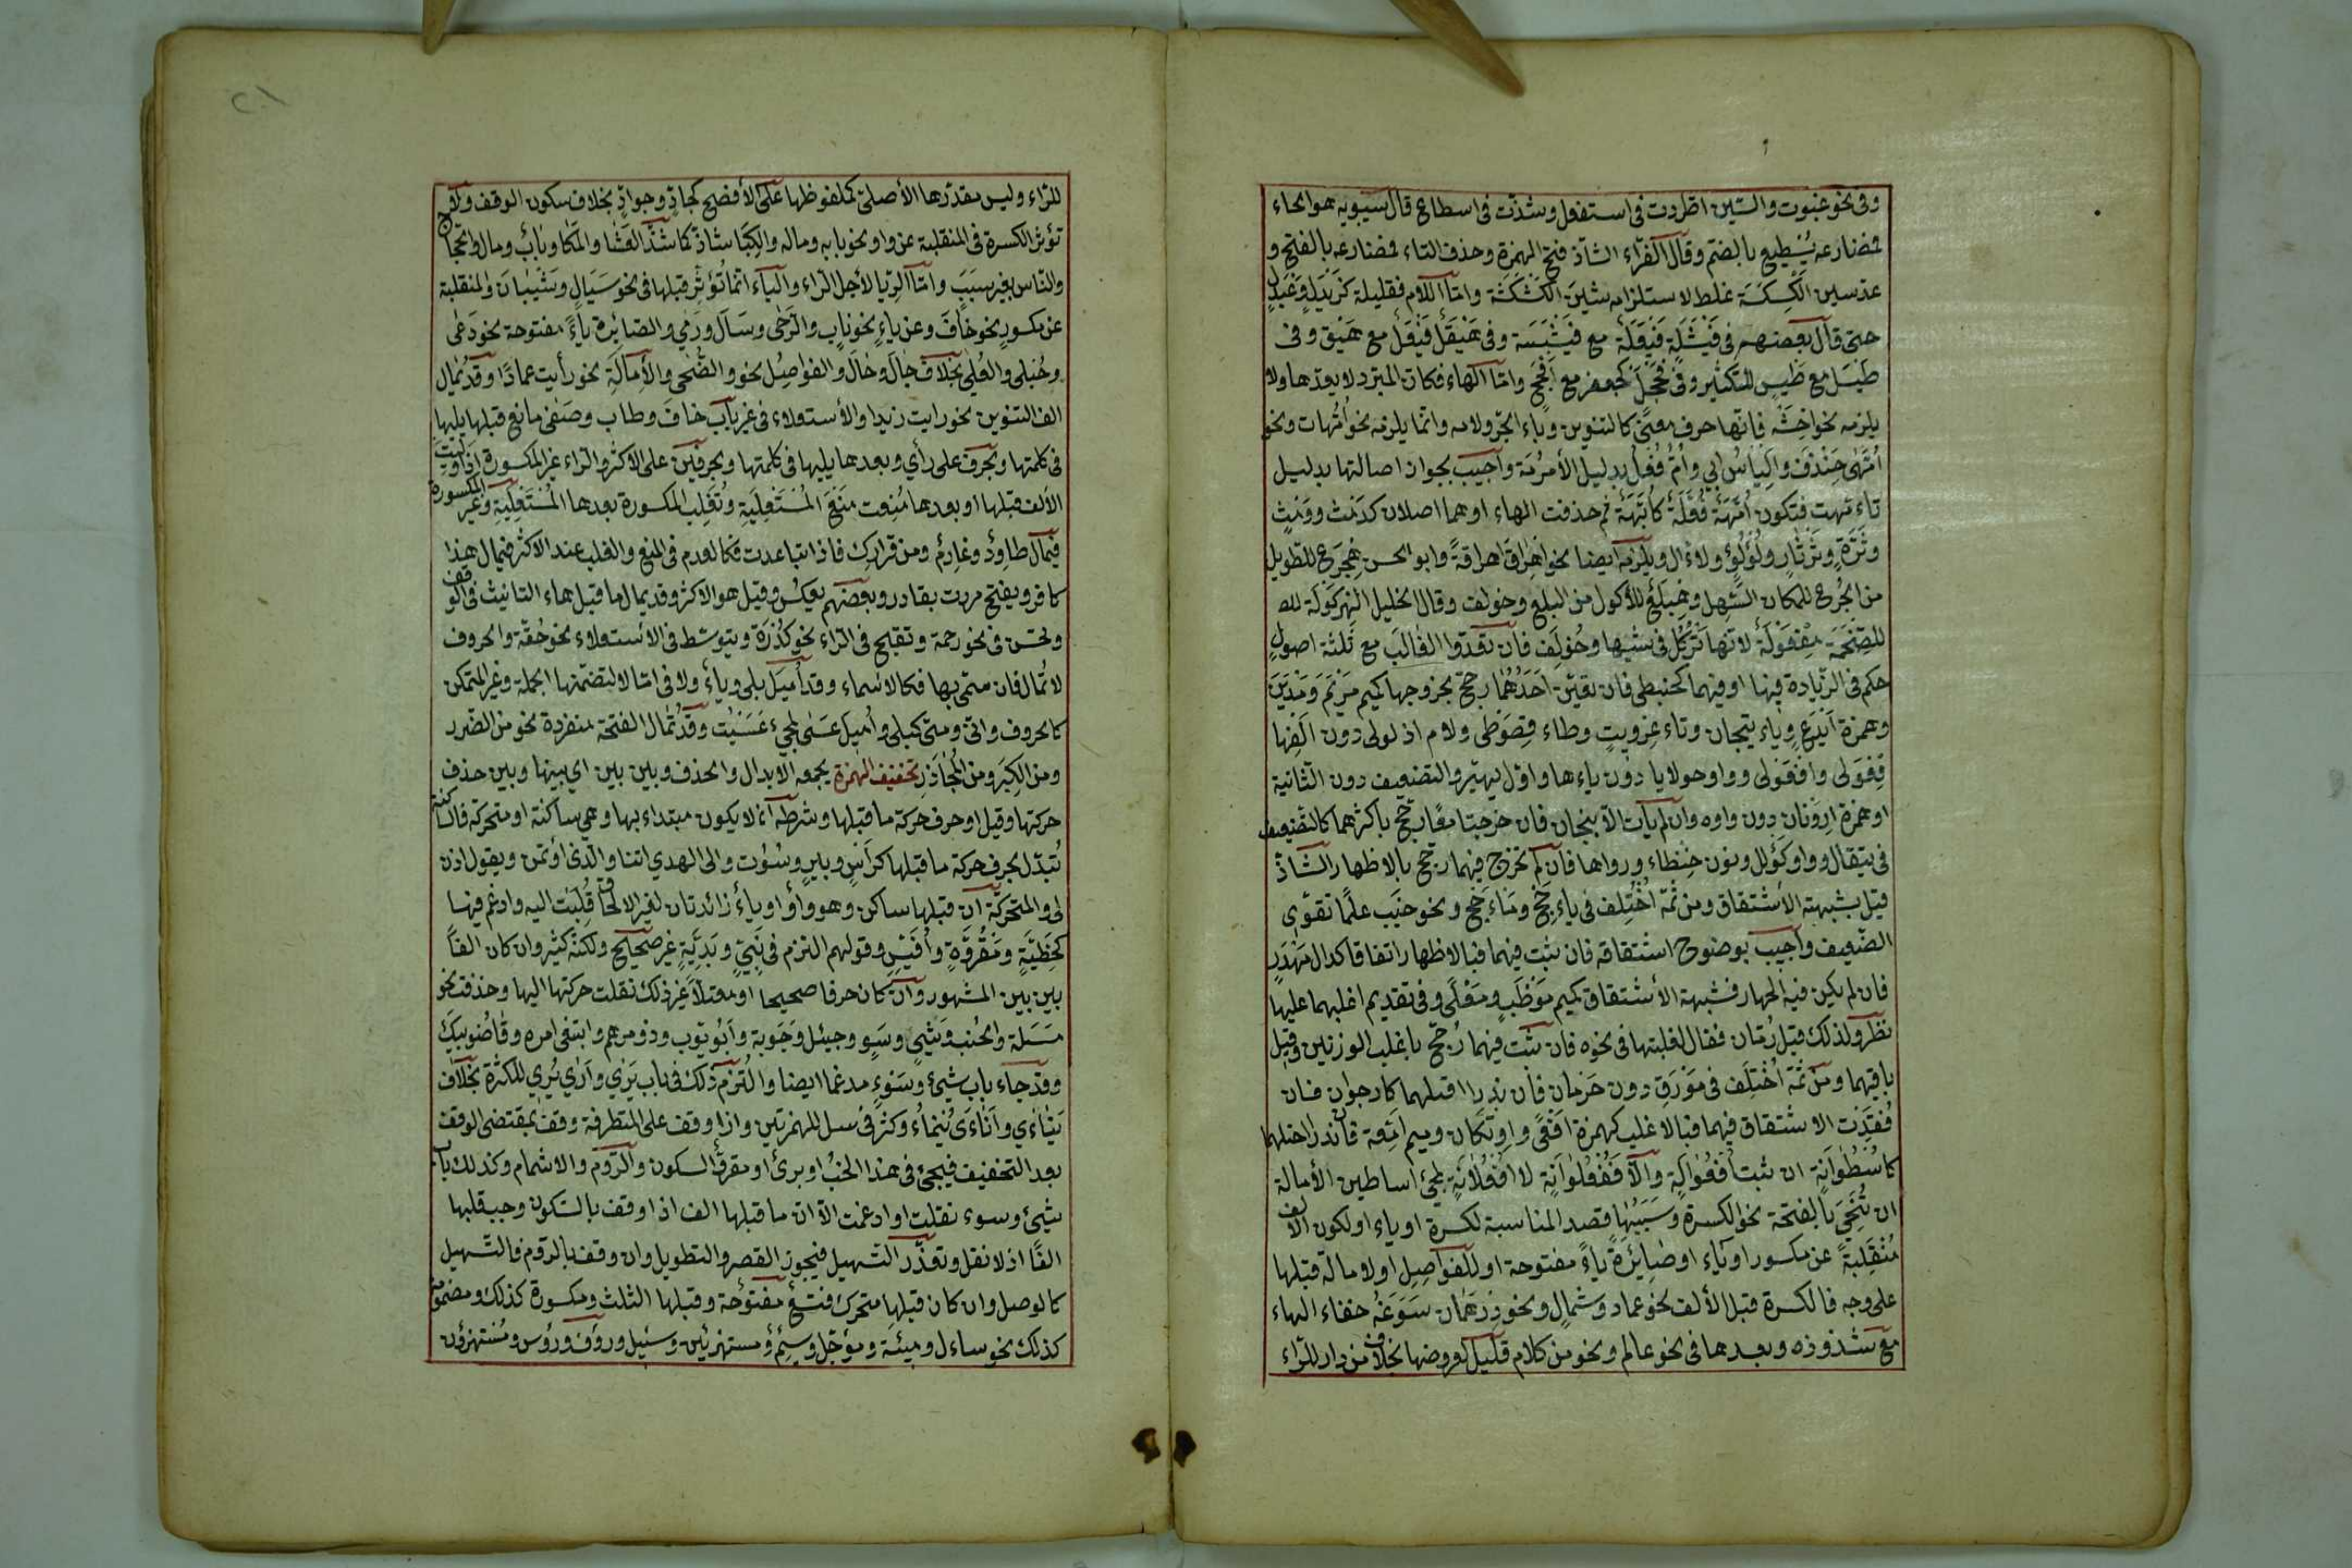 وفى نحو عنبوت والسّين اطّردت فى استفعل وشذّت فى اسطاع قال سيبويه هو اطاع
فمضارعه يُسْطِيع بالضّم وقال الفرّاء الشاذ فتح الهمزة وحذف التاء فمضارعه بالفتح و
عدّ سين الكَسْكَسَة غلط لاستلزامه شين الكَشْكَشَة وامّا اللام فقليلة كزَيْدَلٍ وعَبْدَلٍ
حتى قال بعضهم فى فَيْشَلَةٍ فَيْعَلَةٌ مع فَيْشَةٍ وفى هَيْقَلٍ فَيْعَلٌ مع هَيْقٍ وفى
طَيْسَلٍ مع طَيْسٍ للكثير وفى فَحْجَلٍ كجعفر مع أَفْحَجَ وامّا الهاء فكان المبرّد لا يعدّها ولا
يلزمه نحو اخشه فانّها حرف معنًى كالتنوين وباء الجرّ ولامه وانّما يلزمه نحو أمّهات ونحو
أمّهتى خِنْدِفُ والياسُ ابى وأُمّ فُعْلٌ بدليل الأمومة وأجيب بجواز اصالتها بدليل
تاءمّهت فتكون أُمّهَة فُعَّلَة كأبّهة ثم حذفت الهاء او هما اصلان كدَمِثٍ ودِمَثْرٍ
وثَرَّةٍ وثَرْثَارٍ ولُؤْلُؤٍ ولَأّالٍ ويلزمه ايضا نحو اهراق اهراقةً وابو الحسن هِجْرَع للطّويل
من الجَرَع للمكان السّهل وهِبْلَع للأكول من البلع وخولف وقال الخليل الهِرْكَوْلَة
للضّخمة هِفْعَوْلَة لانّها تَرْكُل فى مشيها وخُولِف فان تعدّد الغالب مع ثلثة اصولٍ
حكم فى الزّيادة فيها او فيهما كحبنطى فان تعيّن احدهما رجّح بخروجها كميم مَرْيَمَ ومَدْيَنَ
وهمزة أَيْدَعٍ وياء تيّحان وتاء عِزْويتٍ وطاء قَطَوْطى ولام اذلولى دون الفها
فَعَوْلى وافْعَوْلى وواو حولايا دون ياءها واوّل يهيرّ والتضعيف دون الثانية
او همزة ارونان دون واوه وان لم يأت الّا انبجان فان خرجتا معًا رجّح باكثرهما كالتضعيف
فى تيقال وواو كوألل ونون حنطاء وواوها فان لم تخرج فيهما رجّح بالاظهار الشّاذّ
قيل بشبهة الاشتقاق ومن ثمّة اختلف فى يأجج ومأجج ونحو حَبَبٍ علمًا تقوّى
الضّعيف وأجيب بوضوح اشتقاقه فان ثبت فيهما فبالاظهار اتفاقا كدال مَهْدَدٍ
فان لم يكن فيه اظهار فشبهة الأشتقاق كميم مَوْظَبٍ ومَعْلًى وفى تقديم اغلبهما عليها
نظر ولذلك قيل رمّان فعّال لغلبتها فى نحوه فان ثبت فيهما رُجّح باغلب الوزنين وقيل
باقيسهما ومن ثمّة اختلف فى مَوْرَقٍ دون حومان فان ندرا احتملهما كارجوان فان
فُقِدَت الاشتقاق فيهما فبالاغلب كهمزة أفعى واوتكان وميم امّعة فان ندرا احتملهما
كأُسْطُوَانَةٍ ان ثبت أُفْعُوَالَة والّا فَفُعْلُوَانَة لا أُفْعُلَانَة لمجئ اساطين الأمالة
ان يُنْحَى بالفتحة نحو الكسرة وسببها قصد المناسبة لكسرة او ياء او لكون الألف
مُنْقَلِبَةً عن مكسور او ياء او صائرةً ياءً مفتوحة او للفواصل او لامالة قبلها
على وجه فالكسرة قبل الألف نحو عماد وشملالٍ ونحو درهمان سوّغه خفاء الهاء
مع شذوذه وبعدها فى نحو عالم ونحو من كلام قليل لعروضها بخلاف من دار للرّاء
للرّاء وليس مقدّرها الأصلىّ كملفوظها على الأفصح كجادٍّ وجوادٍّ بخلاف سكون الوقف ولا
تؤثر الكسرة فى المنقلبة عن واو نحو بابه وماله والكِبَا شاذّ كما شذّ العَشَا والمَكَا وبابٌ ومال والحجّاج
والنّاس بغير سببٍ وامّا الرّبا لأجل الرّاء والياء انّما تُؤثّر قبلها فى نحو سَيَالٍ وشَيْبَانَ والمنقلبة
عن مكسورٍ نحو خافَ وعن ياءٍ نحو نابٍ والرّحى وسَالَ ورَمى والصّائرة ياءً مفتوحة نحو دَعى
وحُبلى والعُلى بخلاف جالَ وحالَ والفواصِل نحو والضّحى والأمالة نحو رأيت عمادًا وقد تُمال
الف التنوين نحو رايت زيدا والاستعلاء فى غير باب خاف وطاب وصَغى مانع قبلها يليها
فى كلمتها وبحرف على رأي وبعدها يليها فى كلمتها وبحرفين على الأكثر والرّاء غير المكسورة اذا وليت
الألف قبلها او بعدها مُنِعت مَنْعَ المُسْتَعْلِيَةِ وتُغَلِّب المكسورة بعدها المُسْتَعْلِيَةِ وغير المكسورة
فيُمال طارِدٌ وغارِمٌ ومن قرارك فاذا تباعدت فكالعدم فى المنع والغلب عند الاكثر فيُمال هذا
كافر ويفتح مررت بقادر وبعضهم بعكس وقيل هو الاكثر وقد يمال ما قبل هاء التانيث فى الوقف
وتحسن فى نحو رحمة وتقبح فى الرّاء نحو كُدْرَة ويتوسّط فى الاستعلاء نحو حُقّة والحروف
لا تُمال فان سمّى بها فكالاسماء وقد أُمِيلَ بلى ويا ولا فى امّا لا لتضمّنها الجملة وغير المتمكّن
كالحروف وانّى ومتى كبلى وأُميل عَسَى لمجئ عَسَيْت وقد تُمال الفتحة منفردة نحو من الضّرر
ومن الكِبَر ومن المُحَاذَرِ تخفيف الهمزة يجمعه الابدال والحذف وبين بين اى بينها وبين حذف
حركتها وقيل او حرف حركة ما قبلها وشرطه ان لا يكون مبتداء بها وهى ساكنة او متحركة فالساكنة
تُبدل بحرف حركة ما قبلها كراسٍ وبيرٍ وسُوْت والى الهدى اتنا والّذى اوتمن ويقول اذن
لى والمتحركة ان قبلها ساكن وهو واو او ياءٌ زائدتان لغير الالحاق قُلِبَت اليه وادغم فيها
كخَطِيَّةٍ ومَقْرُوَّةٍ وأُفَيِّسٍ وقولهم التزم فى نَبِيٍّ وبَرِيَّةٍ غير صحيح ولكنّه كثير وان كان الفًا
بين بين المشهور وان كان حرفا صحيحا او معتلًّا غير ذلك نقلت حركتها اليها وحذفت نحو
مَسَلة والخُب وشَيٍ وسَوٍ وجيَل وحَوَبة وأبُويّوب وذو مرهم وابتغى امره وقاضُوبيك
وقد جاء باب شئ وسَوْءٍ مدغما ايضا والتزم ذلك فى باب يَرى وأرى يُرى للكثرة بخلاف
يَنْأى وأَنْأى يُنْئى وكثر فى سل للهمزتين واذا وقف على المتطرفة وقف بمقتضى الوقف
بعد التخفيف فيجئ فى هذا الخبُ او برئ او مقروّ السكون والرّوم والاشمام وكذلك باب
شئ وسوء نقلت او ادغمت الّا ان ما قبلها الف اذا وقف بالسّكون وجب قلبها
الفًا اذ لا نقل وتعذّر التسهيل فيجوز القصر والتطويل وان وقف بالرّوم فالتسهيل
كالوصل وان كان قبلها متحرك فتسع مفتوحة وقبلها الثلث ومكسورة كذلك ومضمومة
كذلك نحو ساءل وميئة ومؤجّل وسئم ومستهزئين وسئيل ورؤف ورؤس ومُستهزؤن